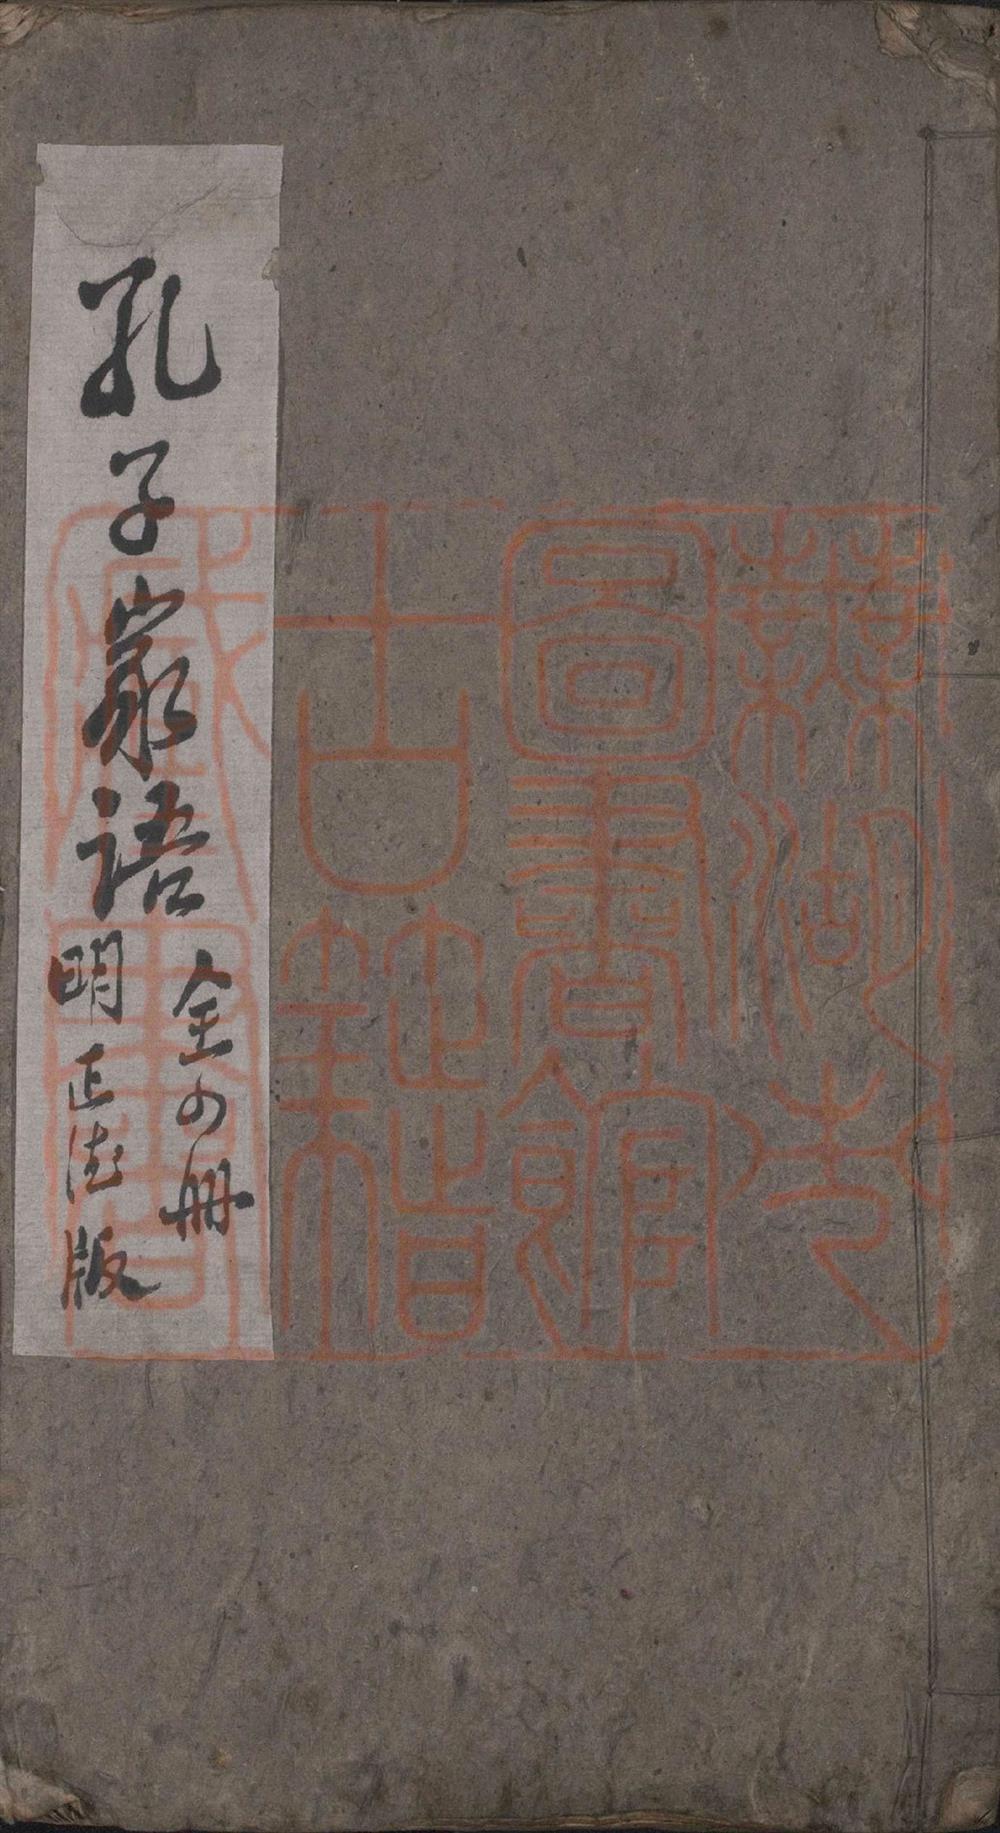 孔子家語
全四冊
明正德版
蕪湖市
圖書館
古籍
藏書